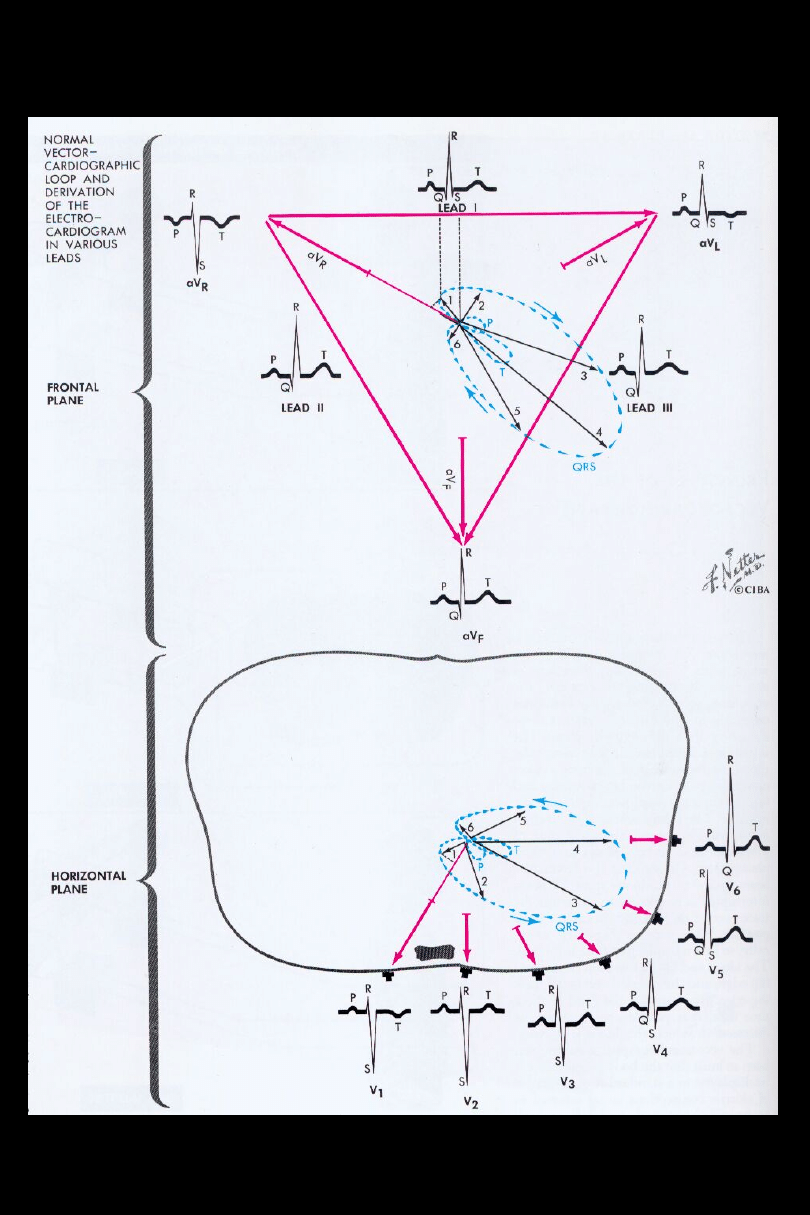 NORMAL
VECTOR–
CARDIOGRAPHIC
LOOP AND
DERIVATION
OF THE
ELECTRO–
CARDIOGRAM
IN VARIOUS
LEADS
R
P
T
Q S
LEAD I
R
P
T
S
aVR
R
P
Q S T
aVL
aVR
aVL
1
2
P
6
T
3
5
4
QRS
R
P
T
Q
LEAD II
R
P
T
Q
LEAD III
FRONTAL
PLANE
aVF
R
P
T
Q
aVF
F. Netter
M.D.
© CIBA
HORIZONTAL
PLANE
6
5
1
T
4
P
2
3
QRS
R
P
T
Q
V6
R
P
T
Q S
V5
R
P
T
Q
S
V4
R
P
T
S
V3
P R T
S
V2
P R
T
S
V1